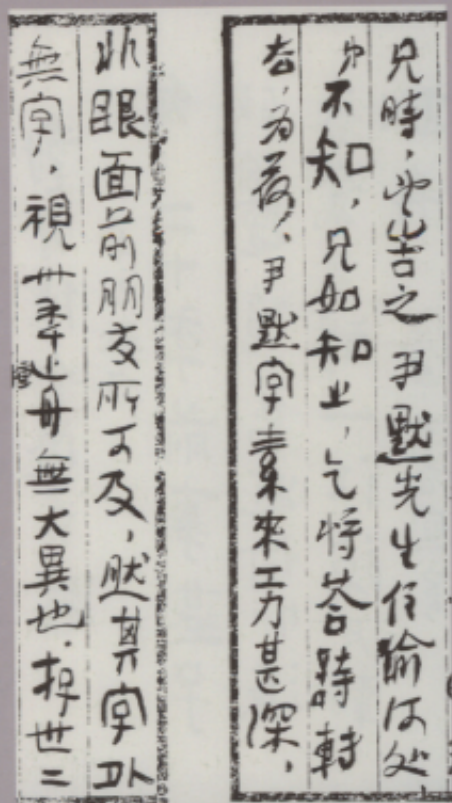 兄時，當告之 尹默先生住渝何处
弟不知，兄如知之，乞將答詩轉
去，为荷，尹默字素來工力甚深，
非眼面前朋友所可及，然其字外
無字，視卅季上無大異也．抑世二